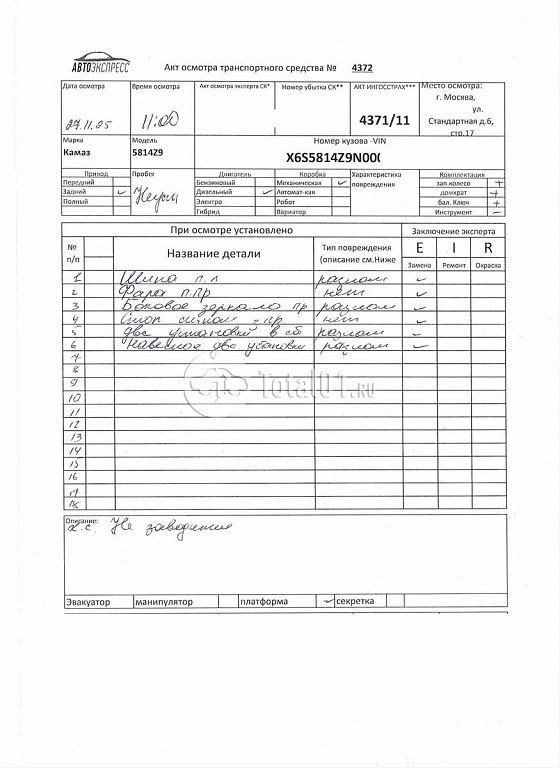 АВТОЭКСПРЕСС
Акт осмотра транспортного средства № 4372
Дата осмотра Время осмотра Акт осмотра эксперта СК* Номер убытка СК** АКТ ИНГОССТРАХ*** Место осмотра:
27.11.25 11:00 4371/11 г. Москва, ул. Стандартная д.6, стр.17
Марка Модель Номер кузова -VIN
Камаз 5814Z9 X6S5814Z9N00
Привод Пробег Двигатель Коробка Характеристика повреждения Комплектация
Передний Бензиновый Механическая ✓ зап.колесо +
Задний ✓ Дизельный ✓ Автомат-кая домкрат +
Полный Электро Робот бал. Ключ +
Гибрид Вариатор Инструмент -
При осмотре установлено Заключение эксперта
№ п/п Название детали Тип повреждения (описание см.Ниже E I R
Замена Ремонт Окраска
1 Шина п.л разлом ✓
2 Фара п.пр нет ✓
3 Боковое зеркало пр разлом ✓
4 Стоп сигнал з.пр нет ✓
5 два установки в сб разлом ✓
6 навесное два установки разлом ✓
7
8
9
10
11
12
13
14
15
16
17
18
Total01.ru
Описание:
Не заводится
Эвакуатор манипулятор платформа ✓ секретка